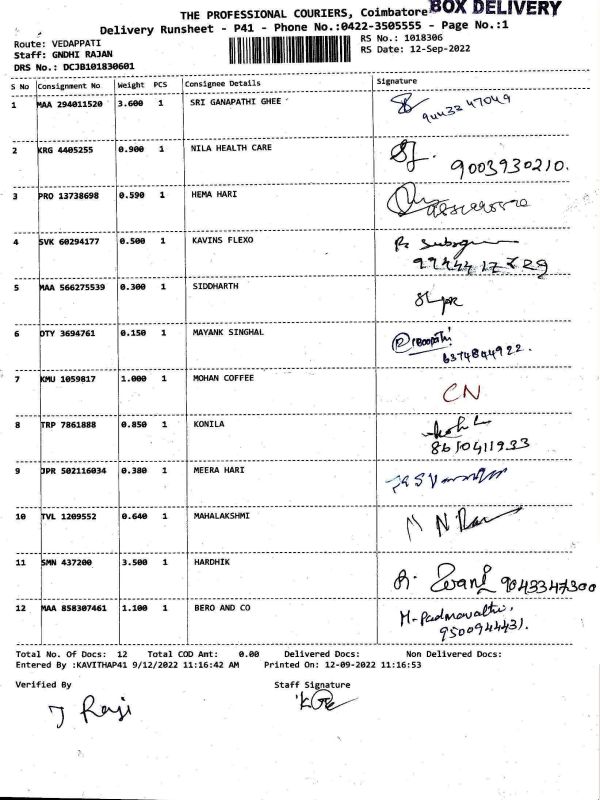 BOX DELIVERY
THE PROFESSIONAL COURIERS, Coimbatore
Delivery Runsheet - P41 - Phone No.:0422-3505555 - Page No.:1
Route: VEDAPPATI
RS No.: 1018306
Staff: GNDHI RAJAN
RS Date: 12-Sep-2022
DRS No.: DCJB101830601
S No Consignment No Weight PCS Consignee Details Signature
1 MAA 294011520 3.600 1 SRI GANAPATHI GHEE
9443247049
2 KRG 4405255 0.900 1 NILA HEALTH CARE
9003930210.
3 PRO 13738698 0.590 1 HEMA HARI
4 SVK 60294177 0.500 1 KAVINS FLEXO
5 MAA 566275539 0.300 1 SIDDHARTH
6 DTY 3694761 0.150 1 MAYANK SINGHAL
6374844922.
7 KMU 1059817 1.000 1 MOHAN COFFEE
CN
8 TRP 7861888 0.850 1 KONILA
8610411933
9 JPR 502116034 0.380 1 MEERA HARI
10 TVL 1209552 0.640 1 MAHALAKSHMI
11 SMN 437200 3.500 1 HARDHIK
9043347300
12 MAA 858307461 1.100 1 BERO AND CO
M. Padmavathi,
9500944431.
Total No. Of Docs: 12 Total COD Amt: 0.00 Delivered Docs: Non Delivered Docs:
Entered By :KAVITHAP41 9/12/2022 11:16:42 AM Printed On: 12-09-2022 11:16:53
Verified By Staff Signature
J Raji